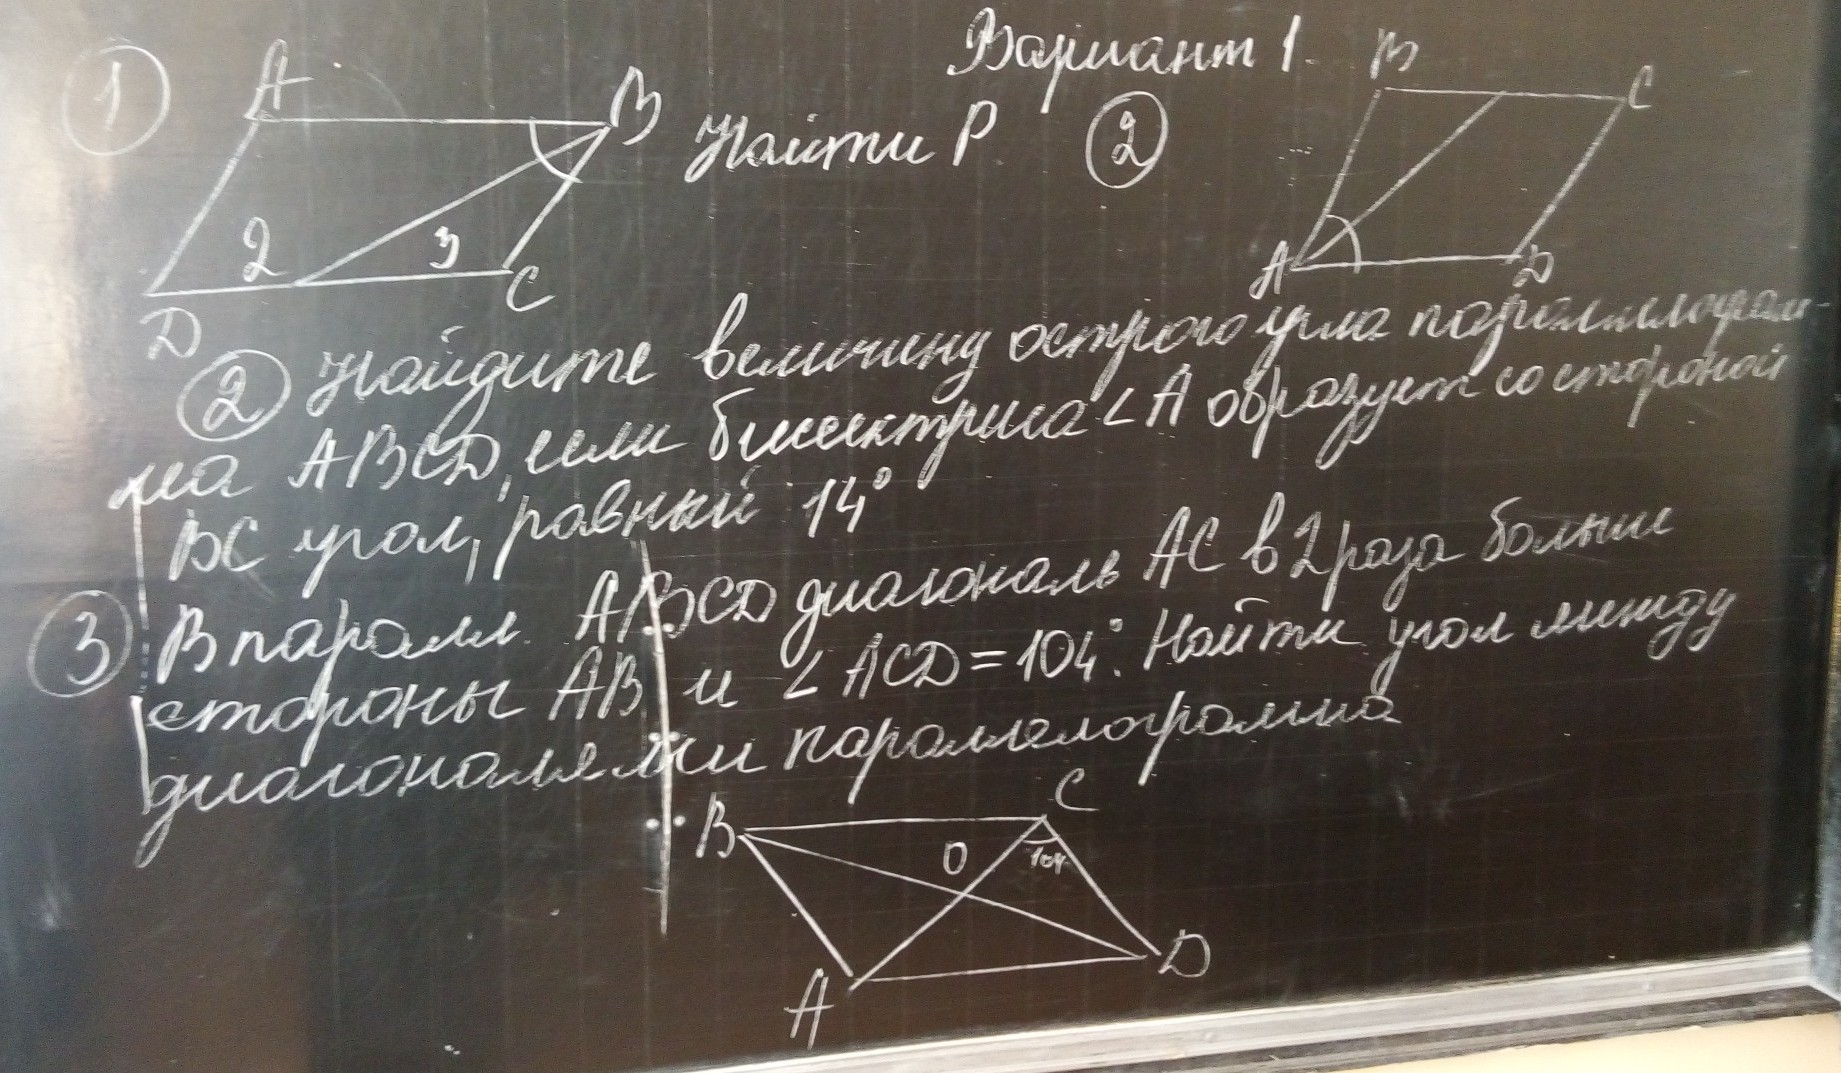 Вариант 1.
1 A B Найти P 2 B C
2 3
D C A D
2 Найдите величину острого угла параллелограм-
ма ABCD, если биссектриса ∠A образует со стороной
BC угол, равный 14°
3 В паралл. ABCD диагональ AC в 2 раза больше
стороны AB и ∠ACD = 104°. Найти угол между
диагоналями параллелограмма
B C
O 104
A D